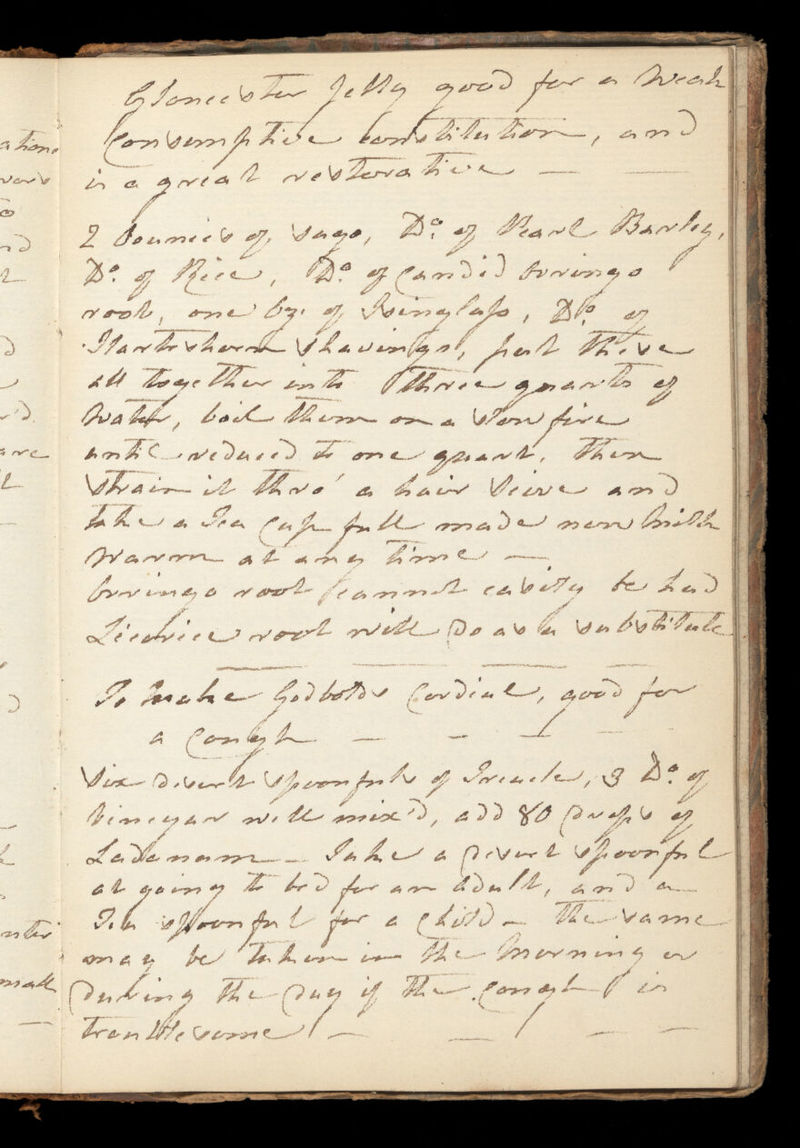 Gloncester Jelly good for a Weak
Consumptive constitution, and
is a great restorative —  —
2 Counces of sago, Do. of Pearl Barley,
Do. of Rice, Do. of Candid Orringo
root, one oz. of Isinglass, Do. of
Hartshorn shavings, put these
all together into three quarts of
Water, boil them on a slow fire
until reduced to one quart, then
strain it thro' a hair Seive and
take a Tea Cup full made new Milk
warm at any time —
Orringo root cannot easily be had
Licorice root will do as a substitute
To Make Godbolds Cordial, good for
a Cough — - — —
Six desert spoonfuls of Treacle, 3 Do. of
Vinegar well mix'd, add 80 Drops of
Ladanam — Take a desert spoonful
at going to bed for an Adult, and a
Tea spoonful for a Child — the same
may be taken in the Morning or
During the Day if the Cough is
troublesome — — — —
ations
to
nd
d
r'd
are
nter
mall
—